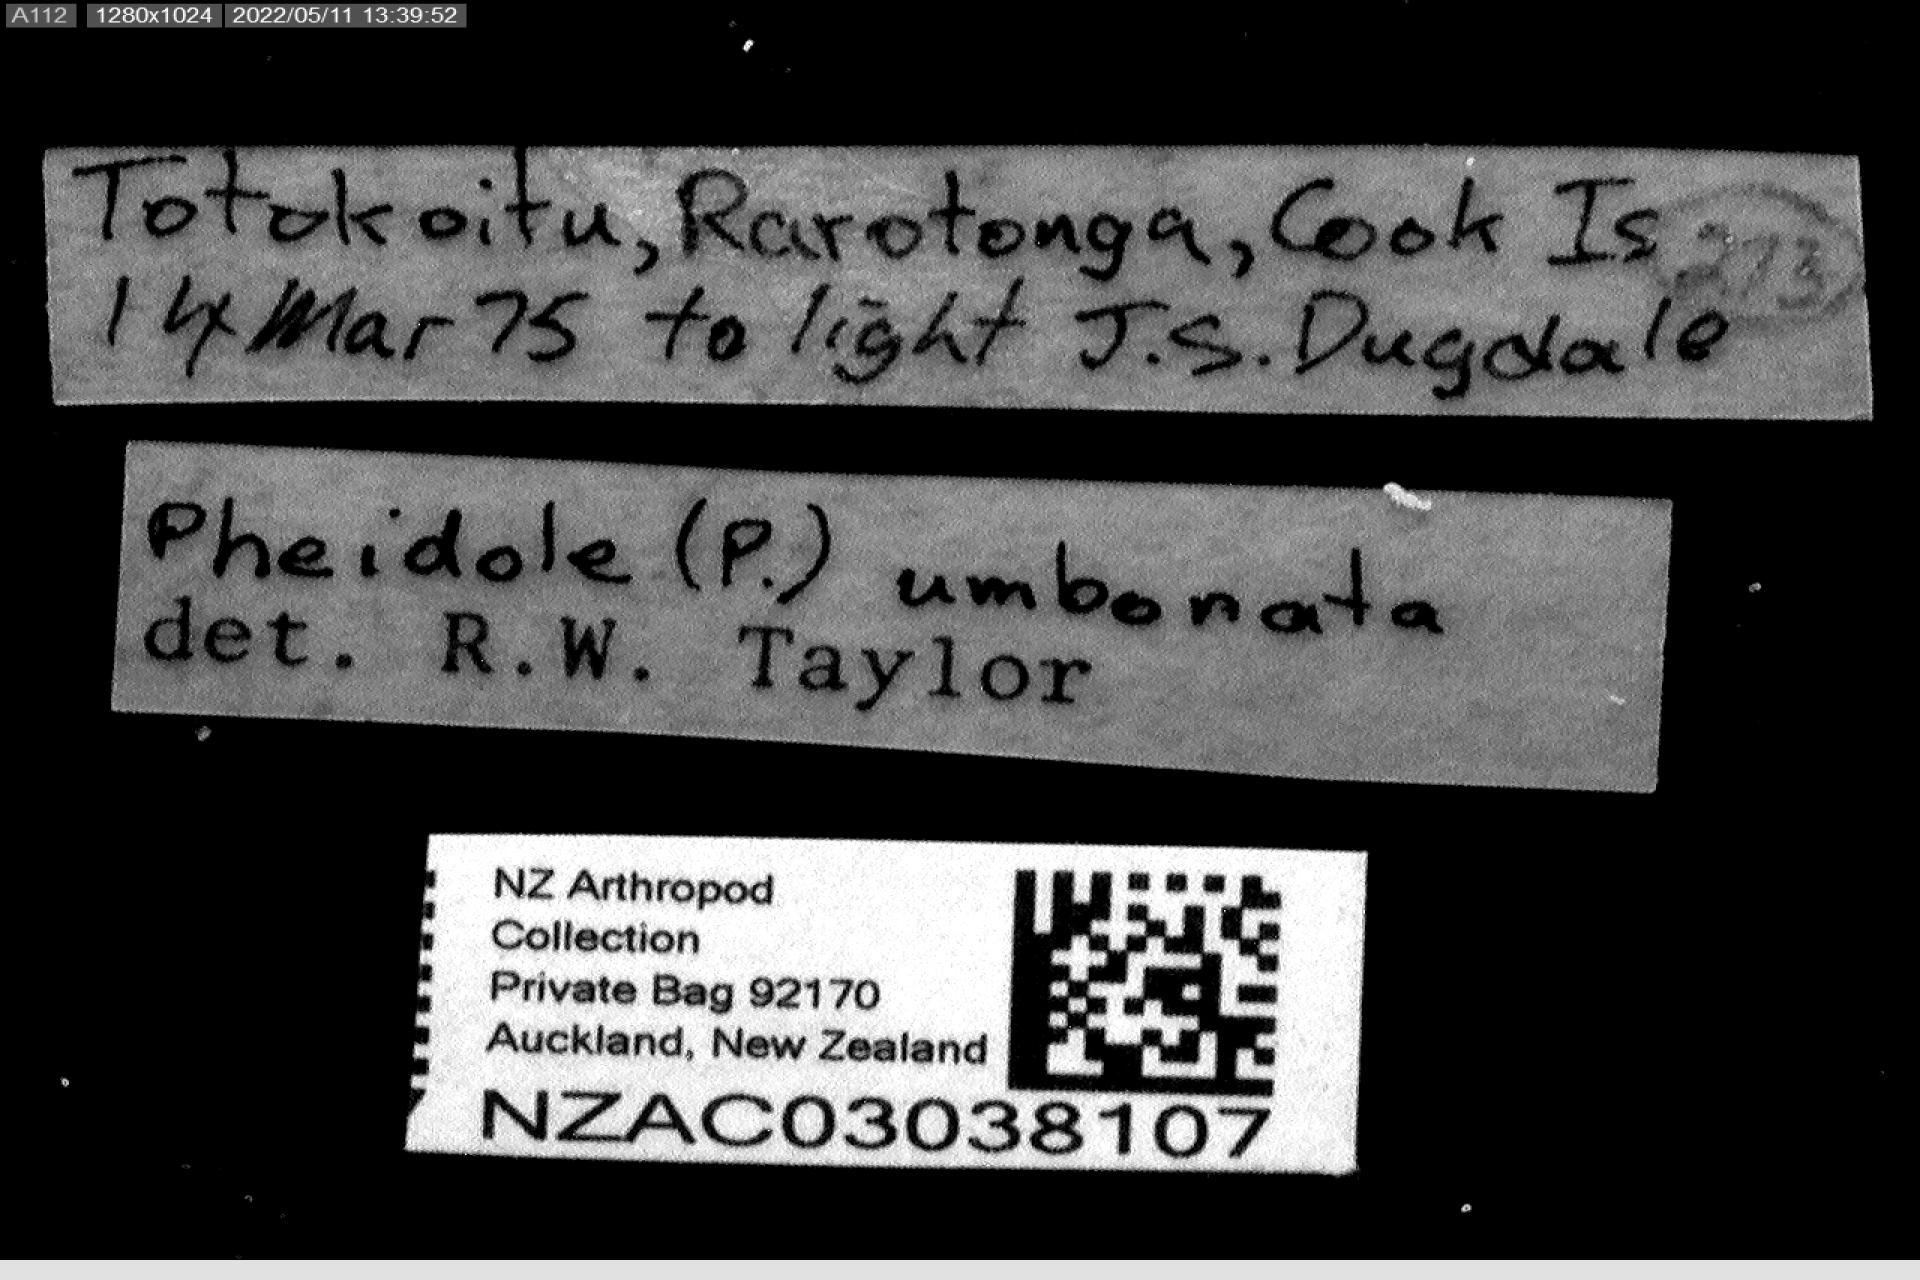 A112 1280x1024 2022/05/11 13:39:52
Totokoitu, Rarotonga, Cook Is 273
14 Mar 75 to light J.S. Dugdale
Pheidole (P.) umbonata
det. R.W. Taylor
NZ Arthropod
Collection
Private Bag 92170
Auckland, New Zealand
NZAC03038107